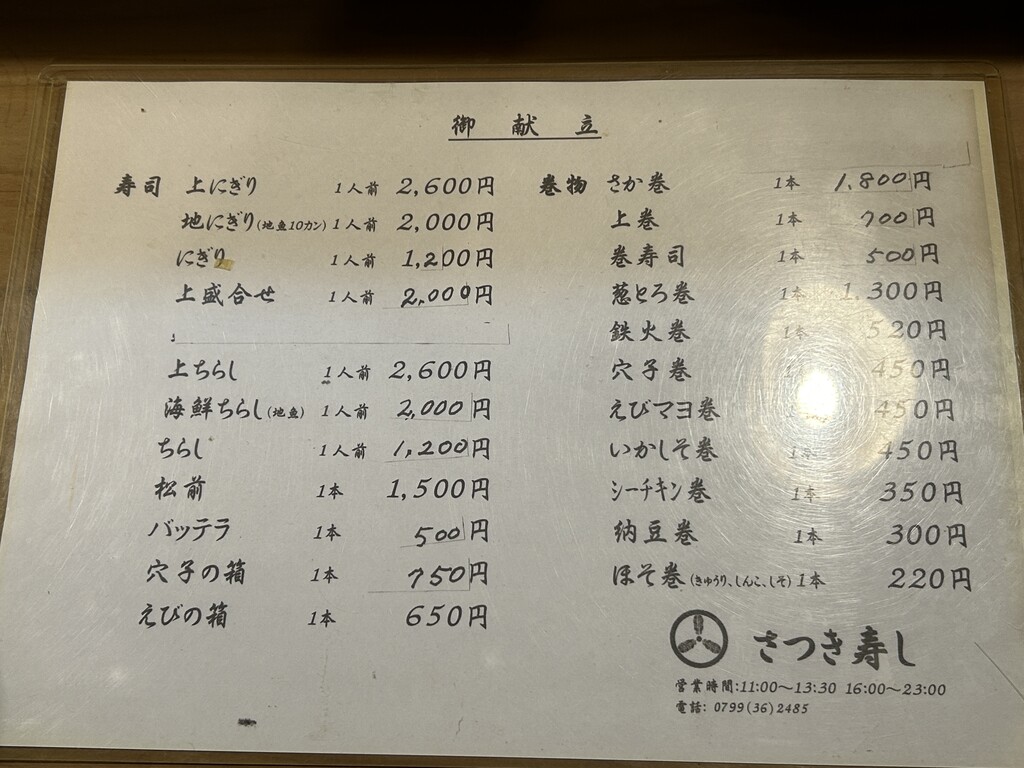 御献立
寿司 上にぎり 1人前 2,600円
地にぎり(地魚10カン) 1人前 2,000円
にぎり 1人前 1,200円
上盛合せ 1人前 2,000円
上ちらし 1人前 2,600円
海鮮ちらし(地魚) 1人前 2,000円
ちらし 1人前 1,200円
松前 1本 1,500円
バッテラ 1本 500円
穴子の箱 1本 750円
えびの箱 1本 650円
巻物 さか巻 1本 1,800円
上巻 1本 700円
巻寿司 1本 500円
葱とろ巻 1本 1,300円
鉄火巻 1本 520円
穴子巻 1本 450円
えびマヨ巻 450円
いかしそ巻 1本 450円
シーチキン巻 1本 350円
納豆巻 1本 300円
ほそ巻(きゅうり、しんこ、しそ) 1本 220円
さつき寿し
営業時間:11:00～13:30 16:00～23:00
電話: 0799(36)2485